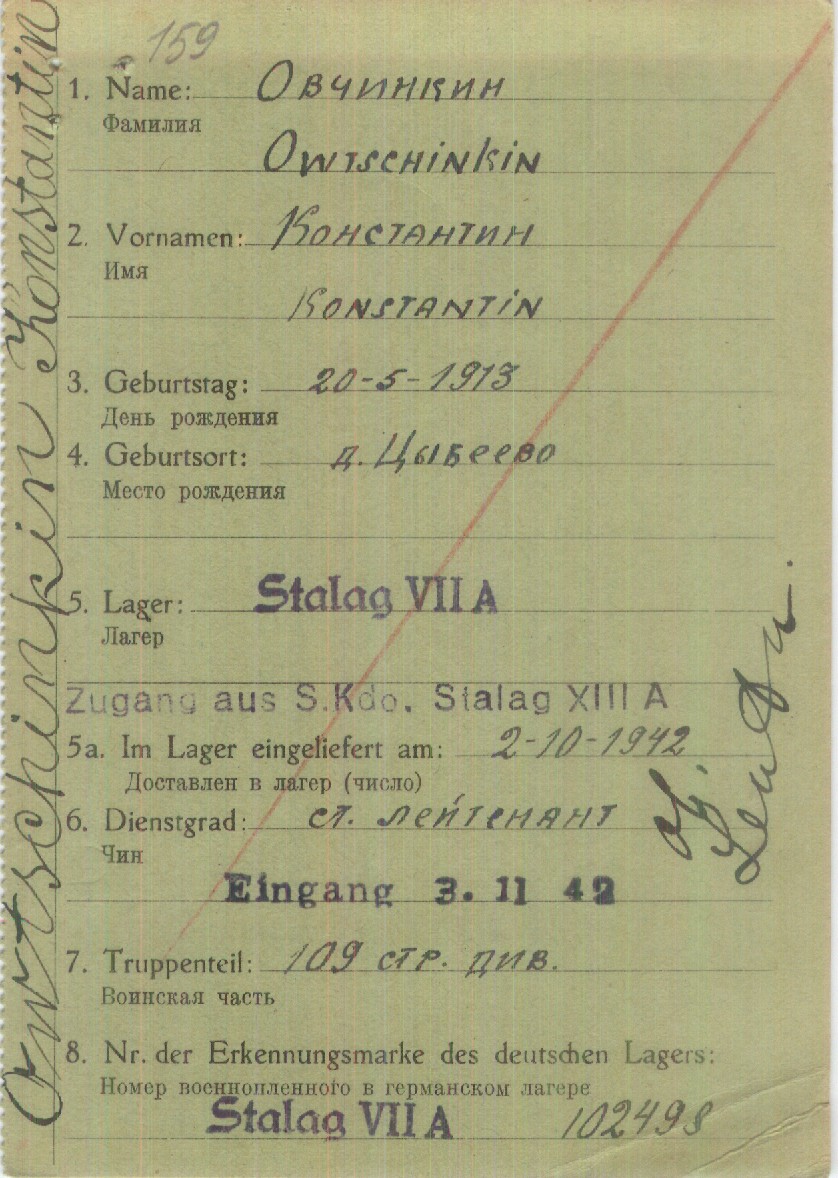 159
1. Name: Овчинкин
Фамилия
Owtschinkin
2. Vornamen: Константин
Имя
Konstantin
3. Geburtstag: 20-5-1913
День рождения
4. Geburtsort: д. Цыбеево
Место рождения
5. Lager: Stalag VII A
Лагер
Zugang aus S.Kdo. Stalag XIII A
5a. Im Lager eingeliefert am: 2-10-1942
Доставлен в лагер (число)
6. Dienstgrad: ст. лейтенант
Чин
Eingang 3. 11 42
7. Truppenteil: 109 стр. див.
Воинская часть
8. Nr. der Erkennungsmarke des deutschen Lagers:
Номер военнопленного в германском лагере
Stalag VII A 102498
Owtschinkin Konstantin